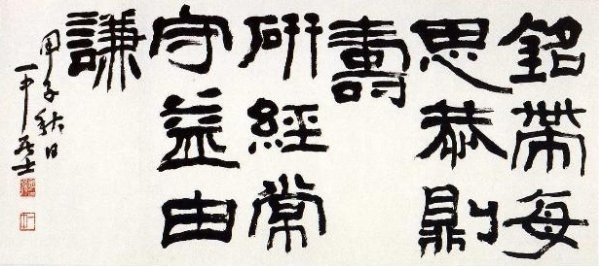 銘帶每
思恭則
壽
研經常
守益由
謙
甲子秋日
一中居士